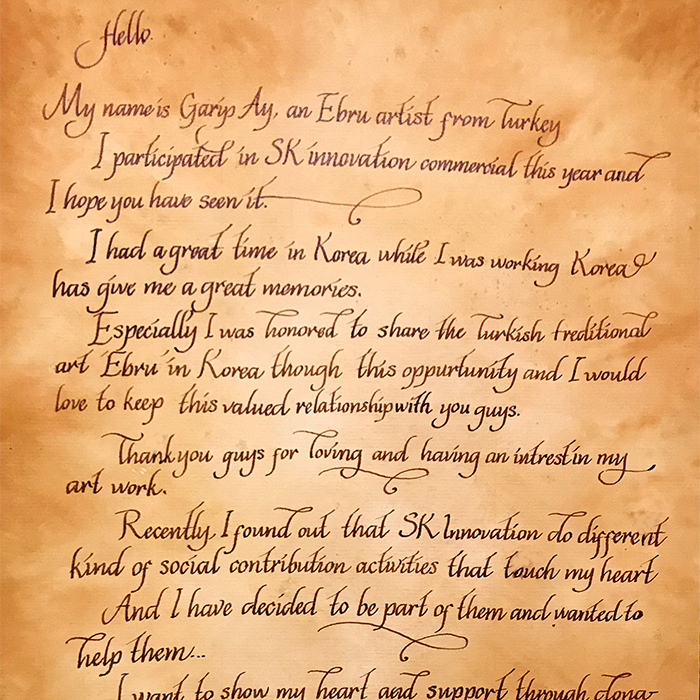 Hello.
My name is Garip Ay, an Ebru artist from Turkey
I participated in SK innovation commercial this year and
I hope you have seen it.
I had a great time in Korea while I was working Korea
has give me a great memories.
Especially I was honored to share the Turkish treditional
art 'Ebru' in Korea though this oppurtunity and I would
love to keep this valued relationship with you guys.
Thank you guys for loving and having an intrest in my
art work.
Recently, I found out that SK Innovation do different
kind of social contribution activities that touch my heart
And I have decided to be part of them and wanted to
help them...
I want to show my heart and support through dona-